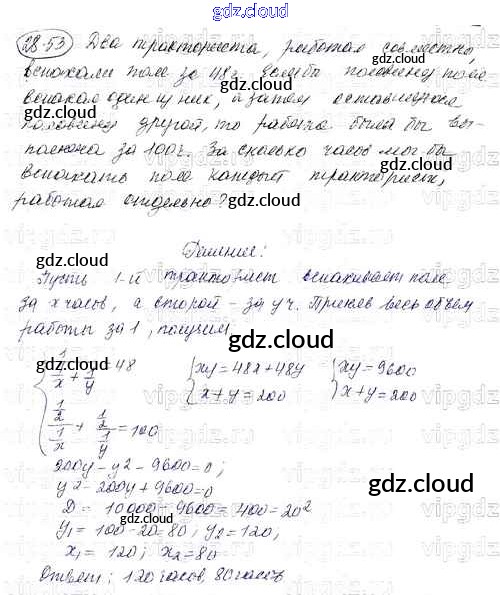 gdz.cloud
28.53 Два тракториста, работая совместно,
вспахали поле за 48ч. Если бы половину поля
вспахал один из них, а затем оставшуюся
половину другой, то работа была бы вы-
полнена за 100ч. За сколько часов мог бы
вспахать поле каждый тракторист,
работая отдельно?
Решение:
Пусть 1-й тракторист вспахивает поле
за x часов, а второй - за y ч. Приняв весь объем
работы за 1, получим
{ 1/(1/x + 1/y) = 48 { xy = 48x + 48y { xy = 9600
{ (1/2)/(1/x) + (1/2)/(1/y) = 100 { x + y = 200 { x + y = 200
200y - y² - 9600 = 0;
y² - 200y + 9600 = 0
D = 10000 - 9600 = 400 = 20²
y₁ = 100 - 20 = 80; y₂ = 120;
x₁ = 120; x₂ = 80
Ответ: 120 часов, 80 часов